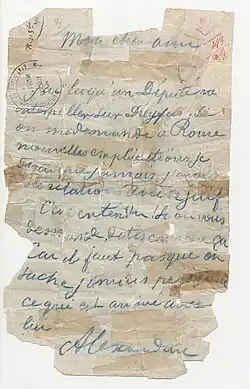 Mon cher ami
J'ai lu qu'un Député va
interpeller sur Dreyfus. Si
on me demande à Rome
nouvelles explications je
dirai que jamais j'avais
des relations avec ce Juif
C'est entendu. Si on vous
demande dites comme ça
Car il faut pas que on
sache jamais personne
ce qui est arrivé avec
lui
Alexandrine